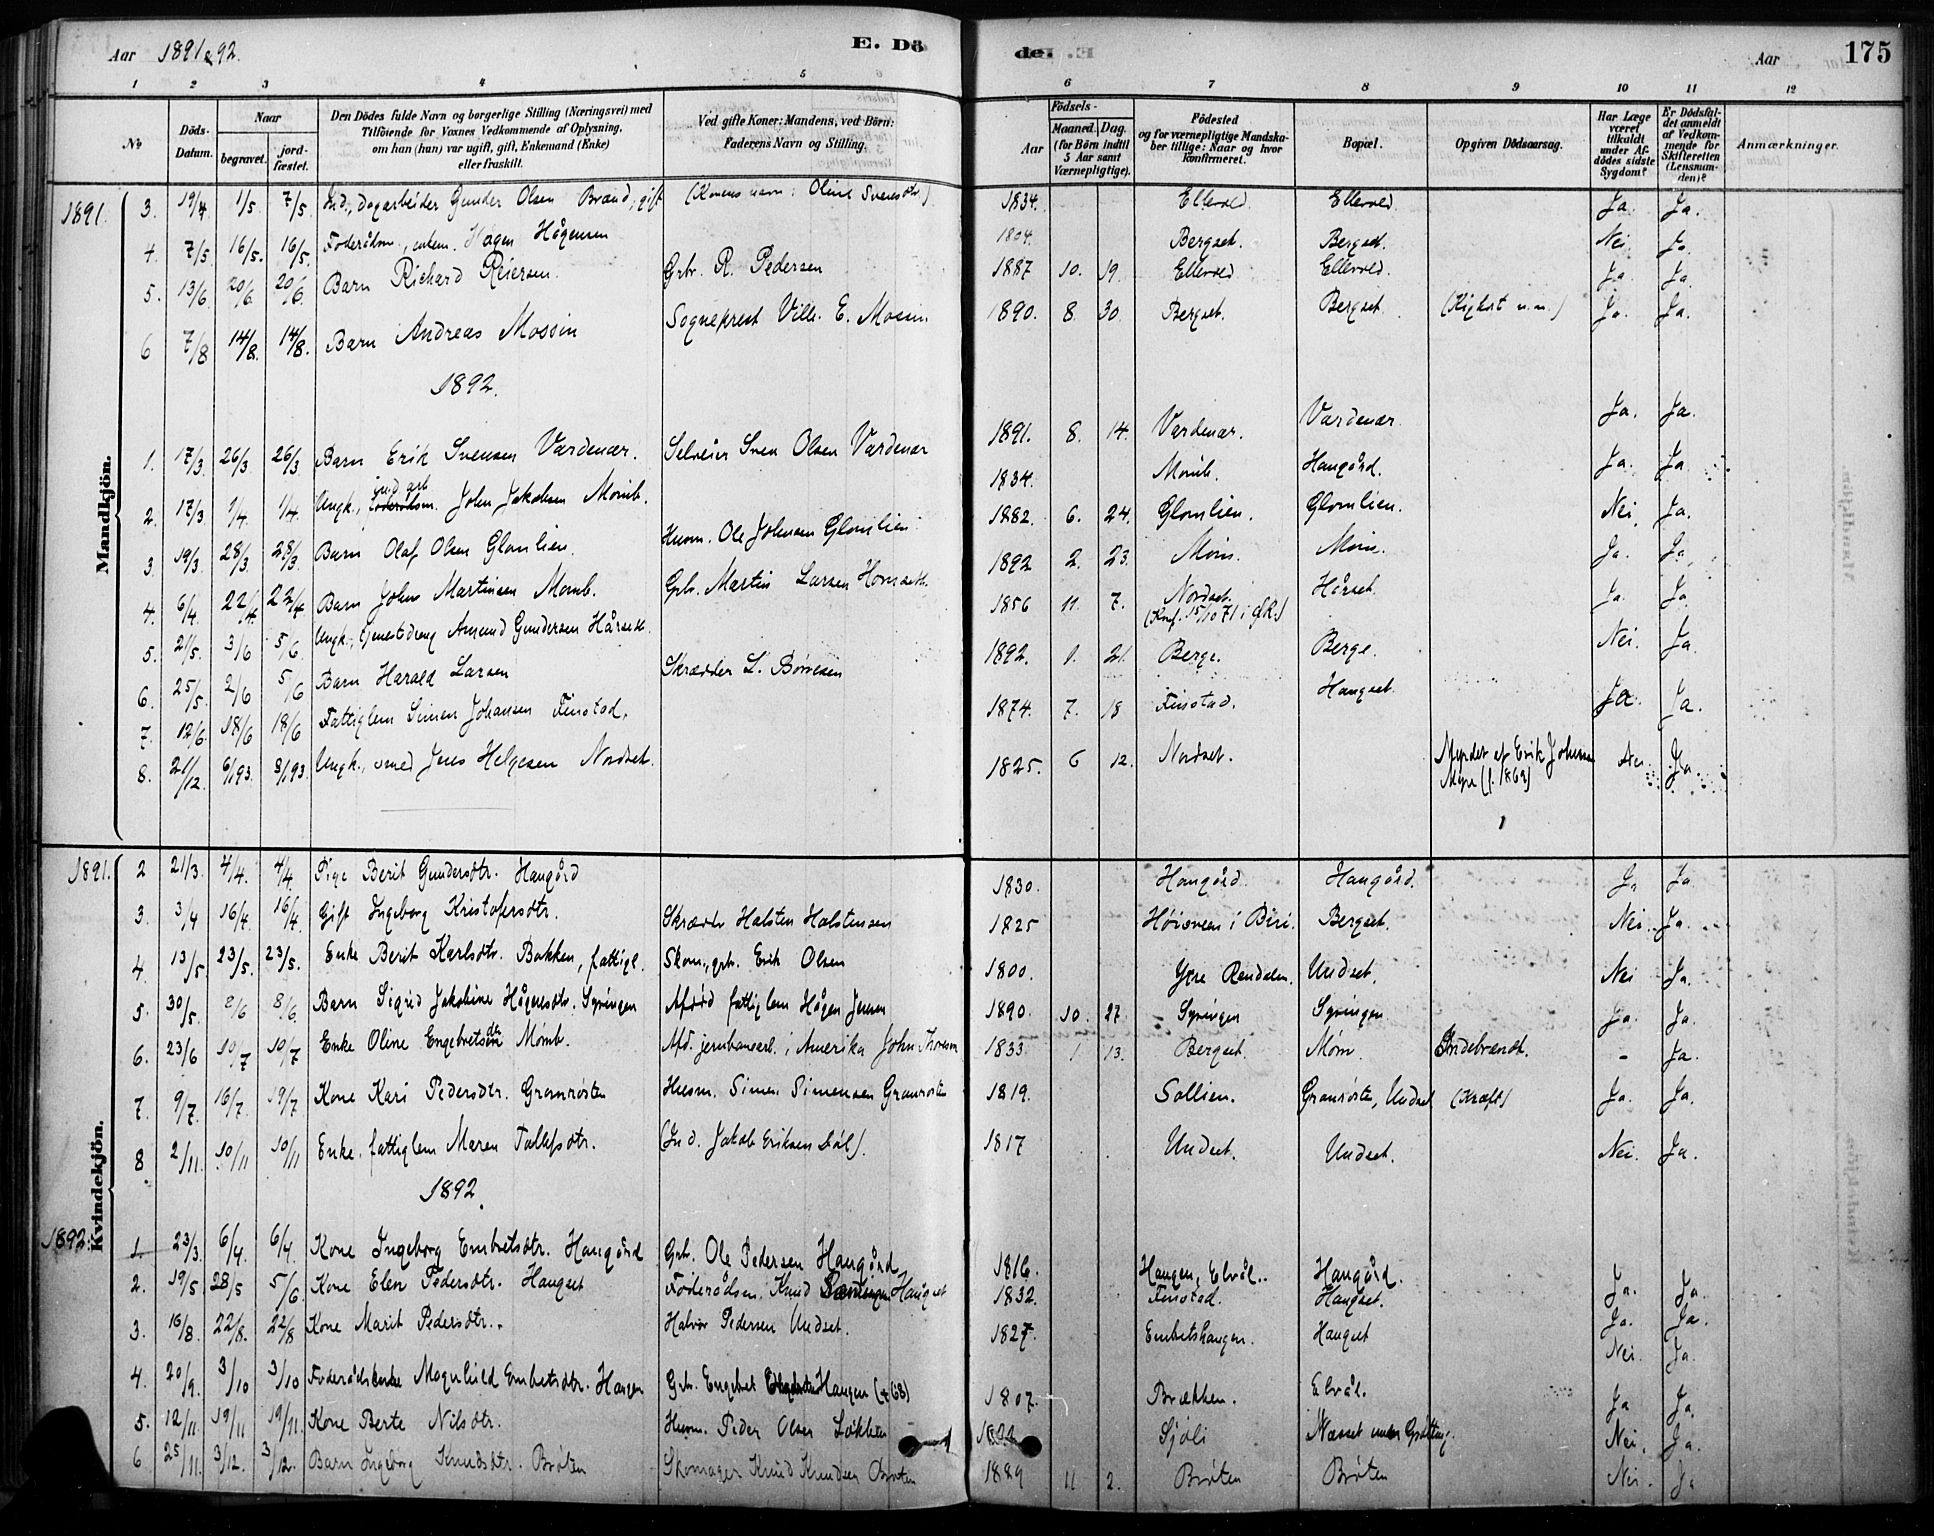 Aar 1891 & 92. E. Dö
de. E. Aar 175
1 2 3 4 5 6 7 8 9 10 11 12
No
Döds-Datum.
Naar
begravet. jord-fæstet.
Den Dödes fulde Navn og borgerlige Stilling (Næringsvei) med
Tilföiende for Voxnes Vedkommende af Oplysning,
om han (hun) var ugift, gift, Enkemand (Enke)
eller fraskilt.
Ved gifte Koner: Mandens, ved Börn:
Faderens Navn og Stilling.
Födsels-
Aar Maaned. Dag.
(for Börn indtil
5 Aar samt
Værnepligtige).
Födested
og for værnepligtige Mandska-
ber tillige: Naar og hvor
konfirmeret.
Bopæl.
Opgiven Dödsaarsag.
Har Læge
været
tilkaldt
under Af-
dödes sidste
Sygdom?
Er Dödsfal-
det anmeldt
af Vedkom-
mende for
Skifteretten
(Lensman-
den)?
Anmærkninger.
Mandkjön.
1891. 3. 19/4 1/5 7/5 Ind., Dagarbeider Gunder Olsen Brænd, gift (Konens navn: Oline Svensdtr.) 1834. Ellevold Ellevold Ja. Ja.
4. 7/5 16/5. 16/5. Foderådsm., enkem. Hagen Hågensen 1804. Bergset. Bergset. Nei Ja.
5. 13/6 20/6. 20/6. Barn Richard Reiersen. Grbr. R. Pedersen 1887 10. 19. Ellevold Ellevold. Ja Ja
6 7/8 14/8. 14/8. Barn Andreas Mossin Sogneprest Vilh. E. Mossin. 1890. 8. 30. Bergset. Bergset (Kighost m.m.) Ja. Ja.
1892.
1. 17/3 26/3. 26/3 Barn Erik Svensen Vardenær. Selveier Sven Olsen Vardenær 1891. 8. 14. Vardenær. Vardenær Ja. Ja.
2. 17/3 1/4. 1/4. Ungk., John Jakobsen Momb. 1834. Momb. Haugård. Ja. Ja
3. 19/3. 28/3. 28/3 Barn Olaf Olsen Glomlien. Husm. Ole Johnsen Glomlien 1882. 6. 24. Glomlien. Glomlien. Nei. Ja.
4. 6/4. 22/4 22/4 Barn John Martinsen Momb. Grbr. Martin Larsen Hornseth. 1892 2. 23. Ja. Ja
5. 21/5. 3/6 5/6. Ungk., tjenestdreng Amund Gundersen Hårseth. 1856 11. 7. Nordset. (Knf. 15/10 71 i ØR.) Hårset. Ja. Ja
6. 25/5 2/6 5/6 Barn Harald Larsen Skrædder L. Børresen 1892. 1. 21. Berge. Berge. Nei. Ja
7. 12/6. 18/6 18/6 Fattiglem Simen Johansen Finstad. 1874. 7. 18 Finstad. Haugset. Ja. Ja.
8. 21/12. 6/1 93. 8/1 93. Ungk., smed Jens Helgesen Nordset. 1825. 6 12. Nordset. Myrdet af Erik Johnsen Myre (f. 1869) Ja.
Kvindekjön.
1891. 2 21/3. 4/4. 4/4. Pige Berit Gundersdtr. Haugård 1830. Haugård. Haugård. Ja Ja
3. 3/4 16/4. 16/4. Gift Ingeborg Kristofersdtr. Skrædder Halsten Halstensen 1825 Høisveen i Biri. Bergset. Nei. Ja.
4. 13/5 23/5. 23/5. Enke Berit Karlsdtr. Bakken, fattigl. Skom., grb. Erik Olsen 1800. Ytre Rendalen. Undset. Nei Ja.
5. 30/5. 8/6 8/6. Barn Sigrid Jakobine Hågensdtr. Syringen Afdød fattiglem Hågen Jensen 1890. 10. 27. Syringen Syringen Ja. Ja.
6. 23/6 10/7 10/7 Enke Oline Engebretsdtr. Momb. Afd. jernbanearb. i Amerika John Thoresen 1833 1 13. Bergset. Indebrændt. - Ja.
7. 9/7. 16/7. 19/7 Kone Kari Pedersdtr. Granrøsten Husm. Simen Simensen Granrøsten 1819. Sollien. Granrøsten, Undset (Kræft) Ja. Ja.
8 2/11. 10/11 10/11 Enke, fattiglem Maren Tollefsdtr. (Ind. Jakob Eriksen Døl). 1817 Undset. Undset. Nei. Ja.
1892.
1892. 1. 23/3. 6/4. 6/4. Kone Ingeborg Embretsdtr. Haugård Grb. Ole Pedersen Haugård 1816. Haugen, Elvål. Haugård.
2. 19/5. 28/5 5/6. Kone Elen Pedersdtr. Haugset Foderådsm. Knud Haugset 1832. Finstad. Haugset. Ja. Ja.
3. 16/8. 22/8. 22/8 Kone Marit Pedersdtr. Halvor Pedersen Undset. 1827. Embretshaugen. Haugset Ja. Ja.
4. 20/9. 3/10 3/10 Foderådsenke Magnhild Embretsdtr. Haugen Grb. Engebret Haugen (+68) 1807. Brækken. Elvål. Nei. Ja.
5. 12/11. 19/11 19/11. Kone Berte Nilsdtr. Husm. Peder Olsen Løkken Sjøli Næsset under Grøtting. Ja Ja.
6 25/11. 3/12. 3/12. Barn Ingeborg Knudsdtr. Brøten Skomager Knud Knudsen Brøten 1889 11 2. Brøten Brøten Nei. Ja.
Nei. Ja